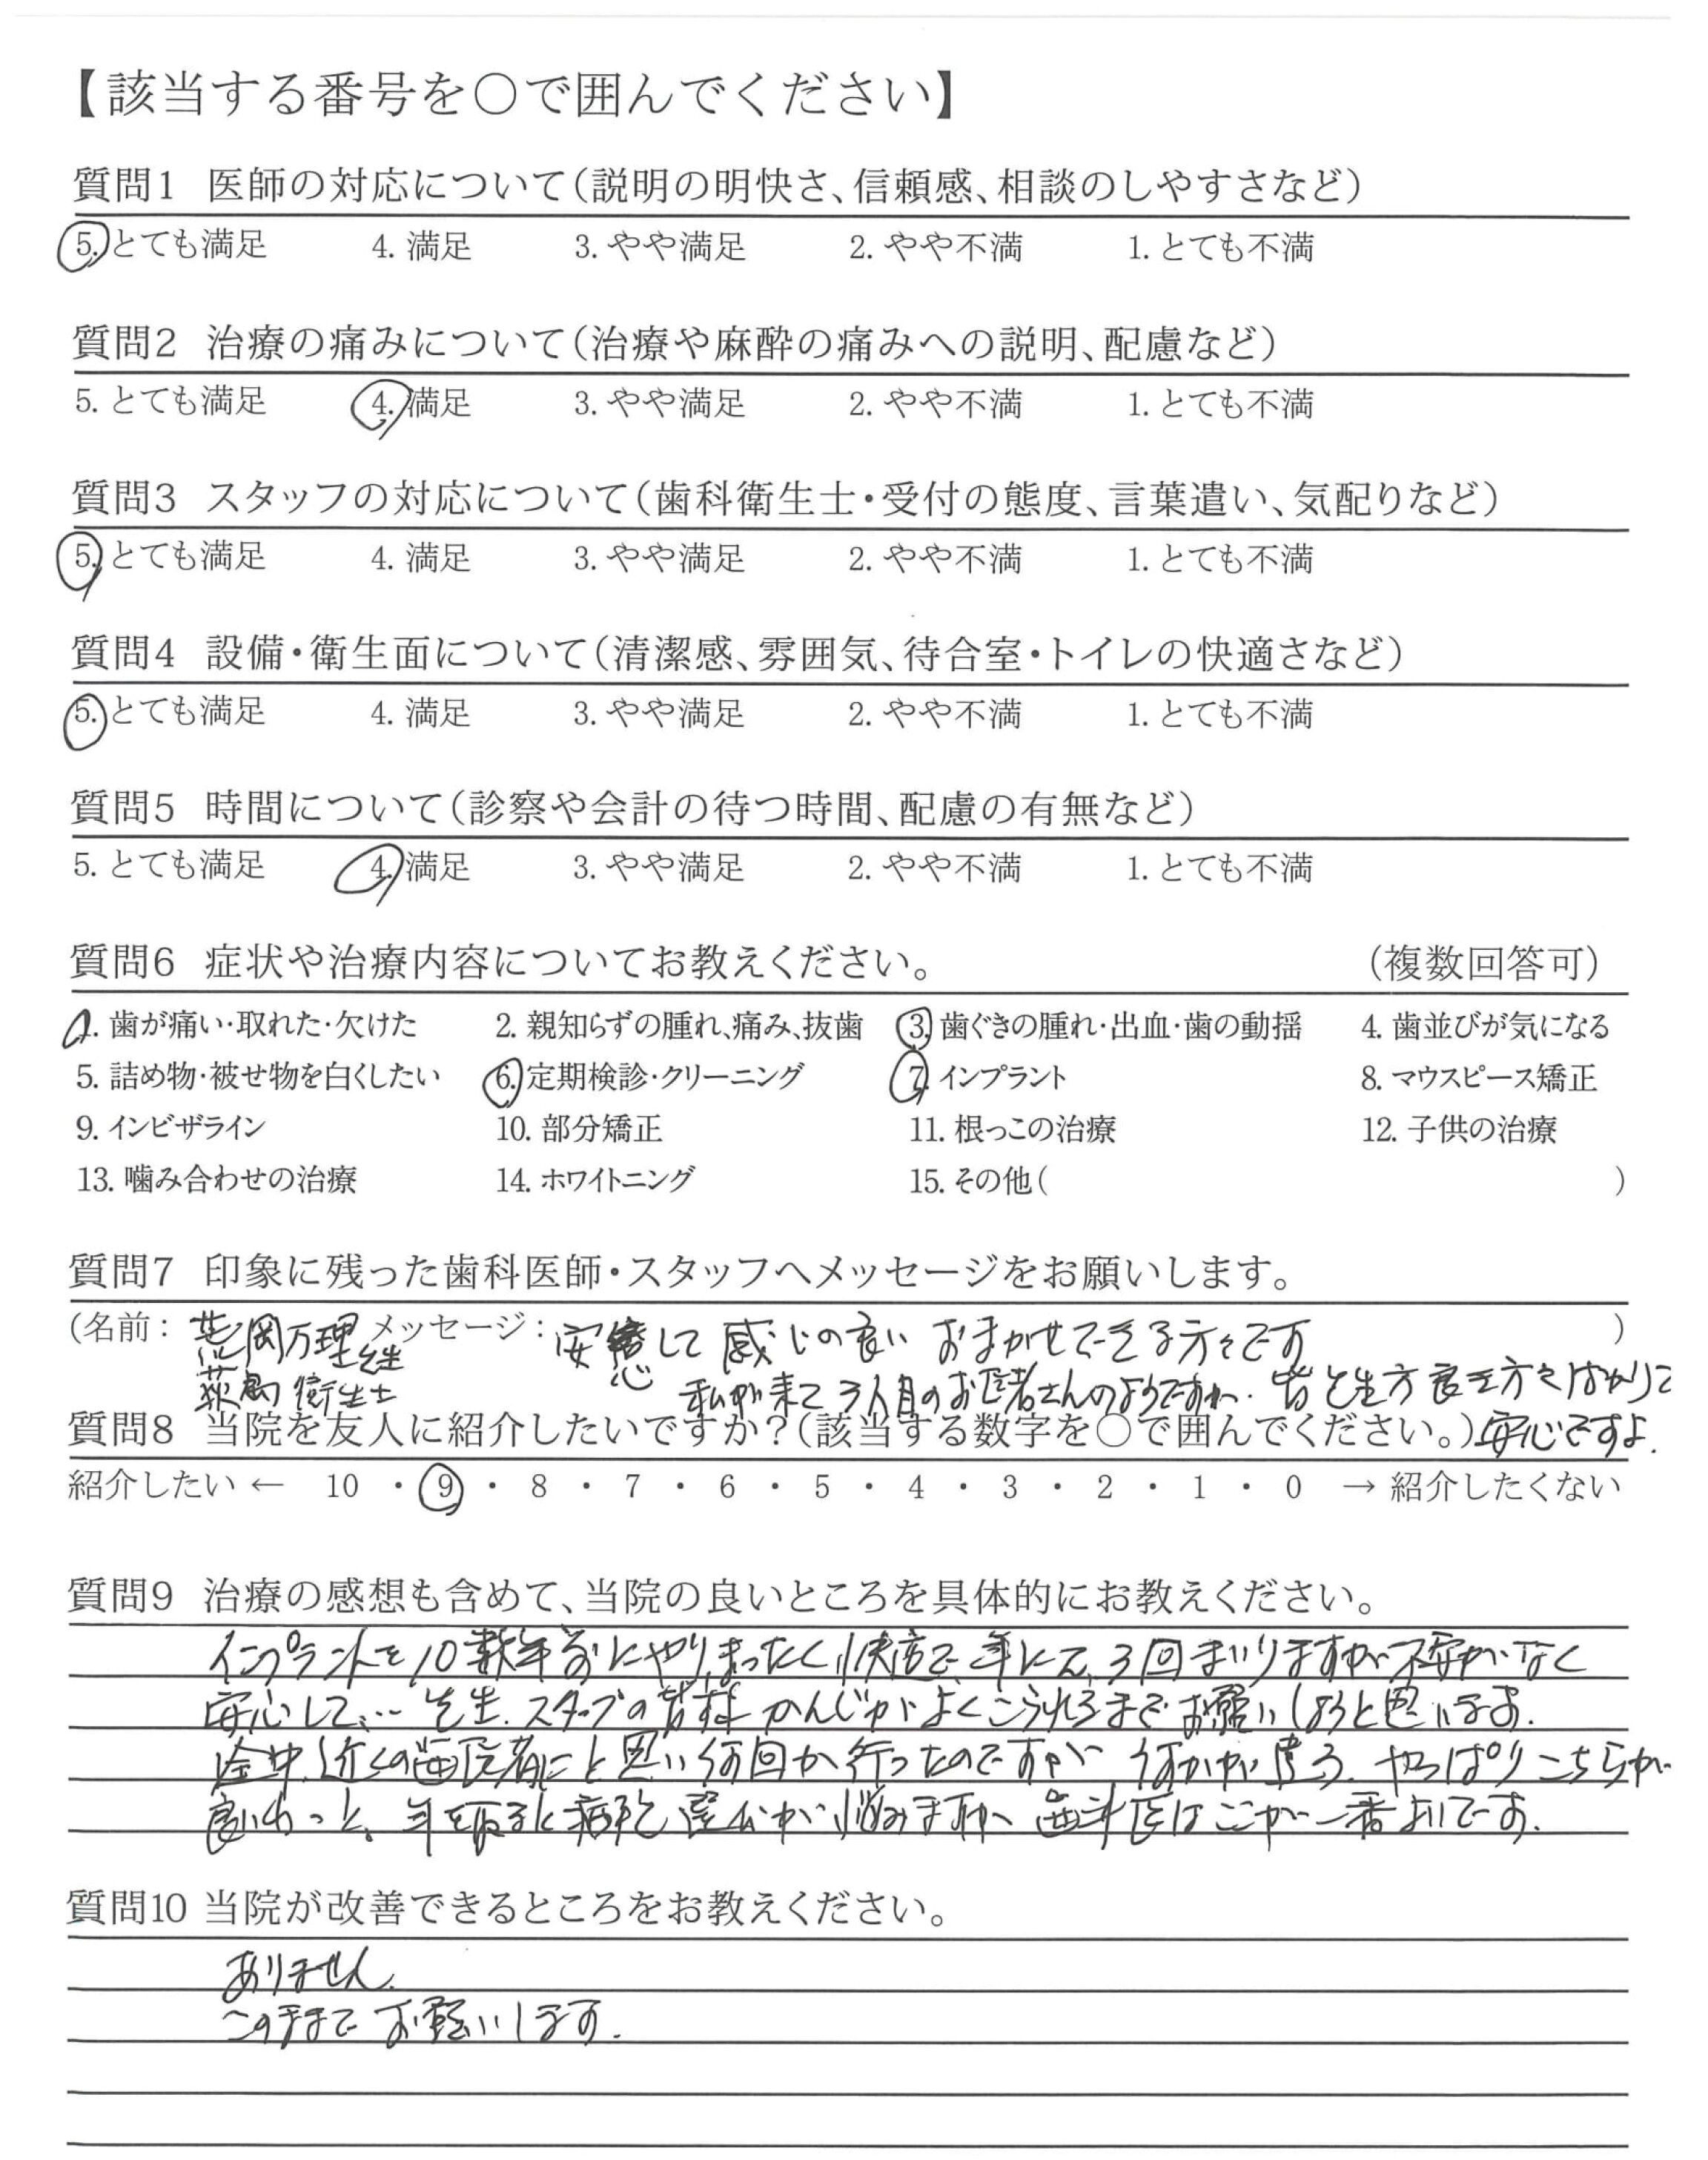 【該当する番号を○で囲んでください】
質問1 医師の対応について（説明の明快さ、信頼感、相談のしやすさなど）
5. とても満足 4. 満足 3. やや満足 2. やや不満 1. とても不満
質問2 治療の痛みについて（治療や麻酔の痛みへの説明、配慮など）
5. とても満足 4. 満足 3. やや満足 2. やや不満 1. とても不満
質問3 スタッフの対応について（歯科衛生士・受付の態度、言葉遣い、気配りなど）
5. とても満足 4. 満足 3. やや満足 2. やや不満 1. とても不満
質問4 設備・衛生面について（清潔感、雰囲気、待合室・トイレの快適さなど）
5. とても満足 4. 満足 3. やや満足 2. やや不満 1. とても不満
質問5 時間について（診察や会計の待つ時間、配慮の有無など）
5. とても満足 4. 満足 3. やや満足 2. やや不満 1. とても不満
質問6 症状や治療内容についてお教えください。 （複数回答可）
1. 歯が痛い・取れた・欠けた 2. 親知らずの腫れ、痛み、抜歯 3. 歯ぐきの腫れ・出血・歯の動揺 4. 歯並びが気になる
5. 詰め物・被せ物を白くしたい 6. 定期検診・クリーニング 7. インプラント 8. マウスピース矯正
9. インビザライン 10. 部分矯正 11. 根っこの治療 12. 子供の治療
13. 噛み合わせの治療 14. ホワイトニング 15. その他（ ）
質問7 印象に残った歯科医師・スタッフへメッセージをお願いします。
（名前： 荒岡万理先生 メッセージ： 安心して 感じの良い おまかせできる方々です ）
衛生士 私が来て 3人目のお医者さんのようですね. 皆先生方 良き方々ばかりで
質問8 当院を友人に紹介したいですか？（該当する数字を○で囲んでください。） 安心ですよ.
紹介したい ← 10 ・ 9 ・ 8 ・ 7 ・ 6 ・ 5 ・ 4 ・ 3 ・ 2 ・ 1 ・ 0 → 紹介したくない
質問9 治療の感想も含めて、当院の良いところを具体的にお教えください。
インプラントを10数年前にやり、まったく快適で、年に2、3回まいりますが不安がなく
安心して、… 先生. スタッフの皆様 かんじがよくこられるまでお願いしようと思います.
途中、近くの歯医者にと思い何回か行ったのですが 何かが違う. やっぱりこちらが
良いわっと、年を取ると病院 が悩みますが 歯科医はここが一番よいです.
質問10 当院が改善できるところをお教えください。
ありません.
このままで お願いします.